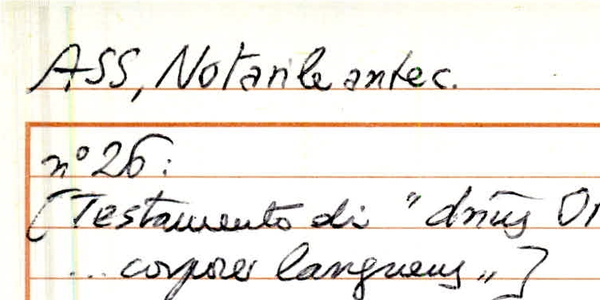 ASS, Notarile antec.
n° 26:
[Testamento di "dn̄us
... corpore languens"]